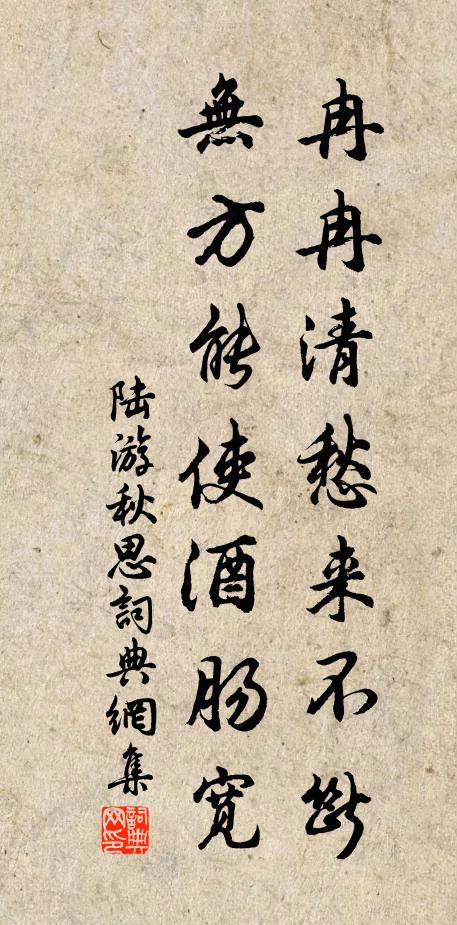 冉冉清愁来不断
無方能使酒肠寛
陆游秋思詞典網集
詞典网印